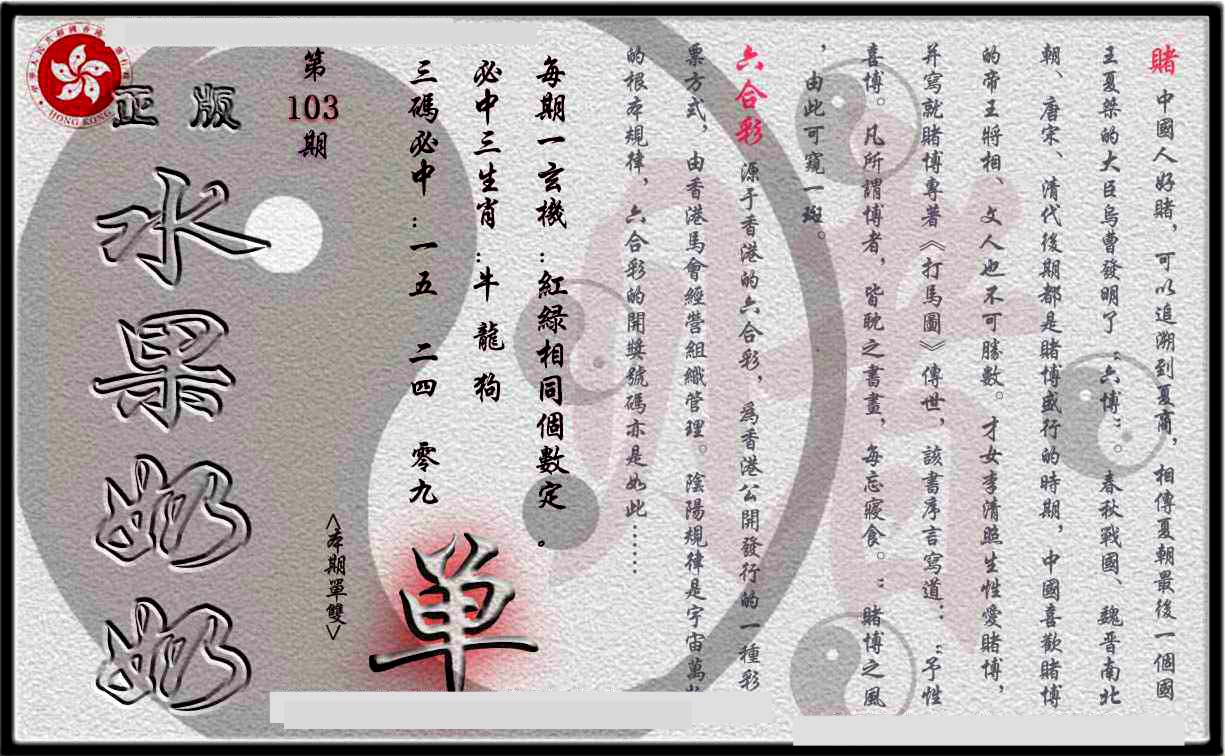 賭 中國人好賭，可以追溯到夏商，相傳夏朝最後一個國
王夏桀的大臣烏曹發明了“六博”。春秋戰國、魏晋南北
朝、唐宋、清代後期都是賭博盛行的時期，中國喜歡賭博
的帝王將相、文人也不可勝數。才女李清照生性愛賭博，
并寫就賭博專著《打馬圖》傳世，該書序言寫道：“予性
喜博。凡所謂博者，皆耽之書畫，每忘寢食。”賭博之風
，由此可窺一斑。
六合彩 源于香港的六合彩，爲香港公開發行的一種彩
票方式，由香港馬會經營組織管理。陰陽規律是宇宙萬物
的根本規律，六合彩的開獎號碼亦是如此……
每期一玄機：紅緑相同個數定。
必中三生肖：牛 龍 狗
三碼必中：一五 二四 零九
<本期單雙>
单
第
103
期
正版
水果奶奶
HONG KONG